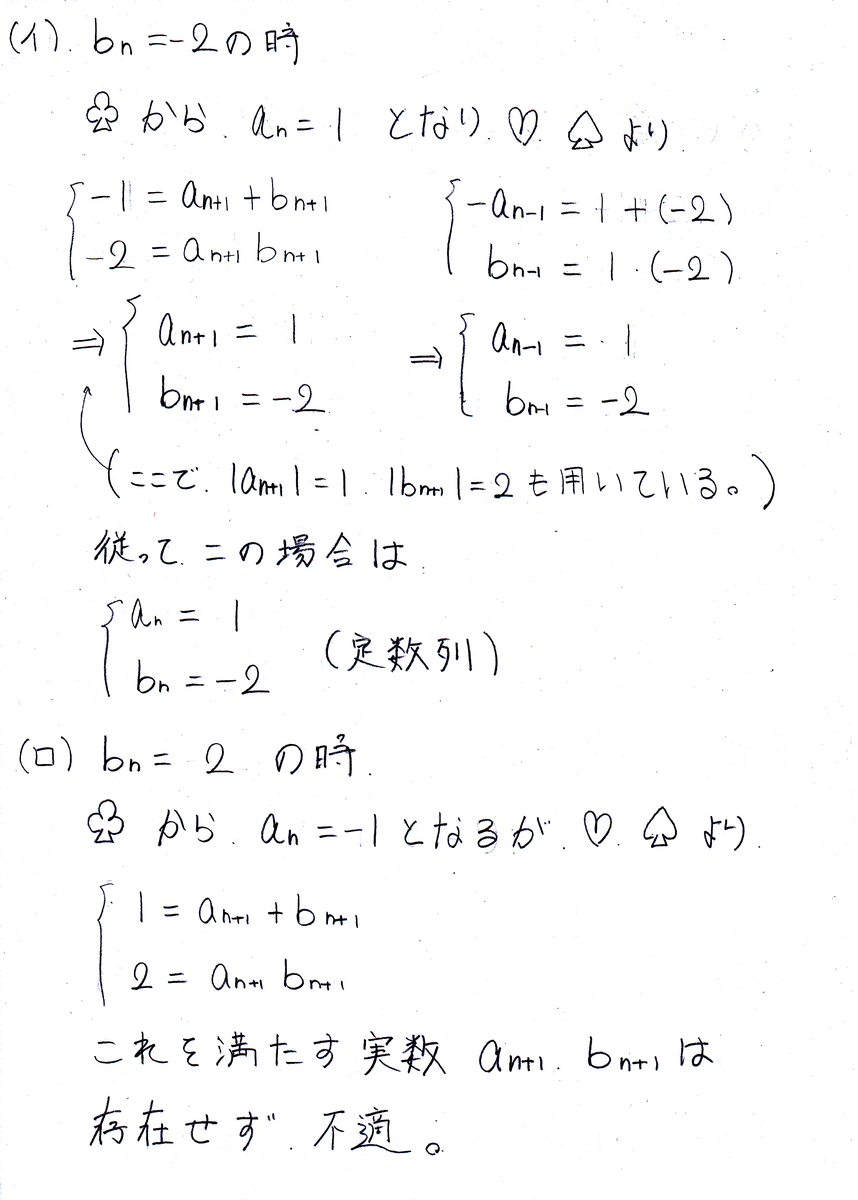 (イ). bn =-2の時
♧ から. an = 1 となり. ♡. ♤ より.
{ -1 = an+1 + bn+1   { -an-1 = 1 + (-2)
{ -2 = an+1 bn+1   { bn-1 = 1 · (-2)
⇒ { an+1 = 1   ⇒ { an-1 = 1
{ bn+1 = -2   { bn-1 = -2
(ここで. |an+1|=1. |bn+1|=2 も用いている。)
従って. この場合は.
{ an = 1
{ bn = -2 (定数列)
(ロ) bn = 2 の時.
♧ から. an = -1 となるが. ♡. ♤ より.
{ 1 = an+1 + bn+1
{ 2 = an+1 bn+1
これを満たす実数 an+1. bn+1 は
存在せず. 不適。